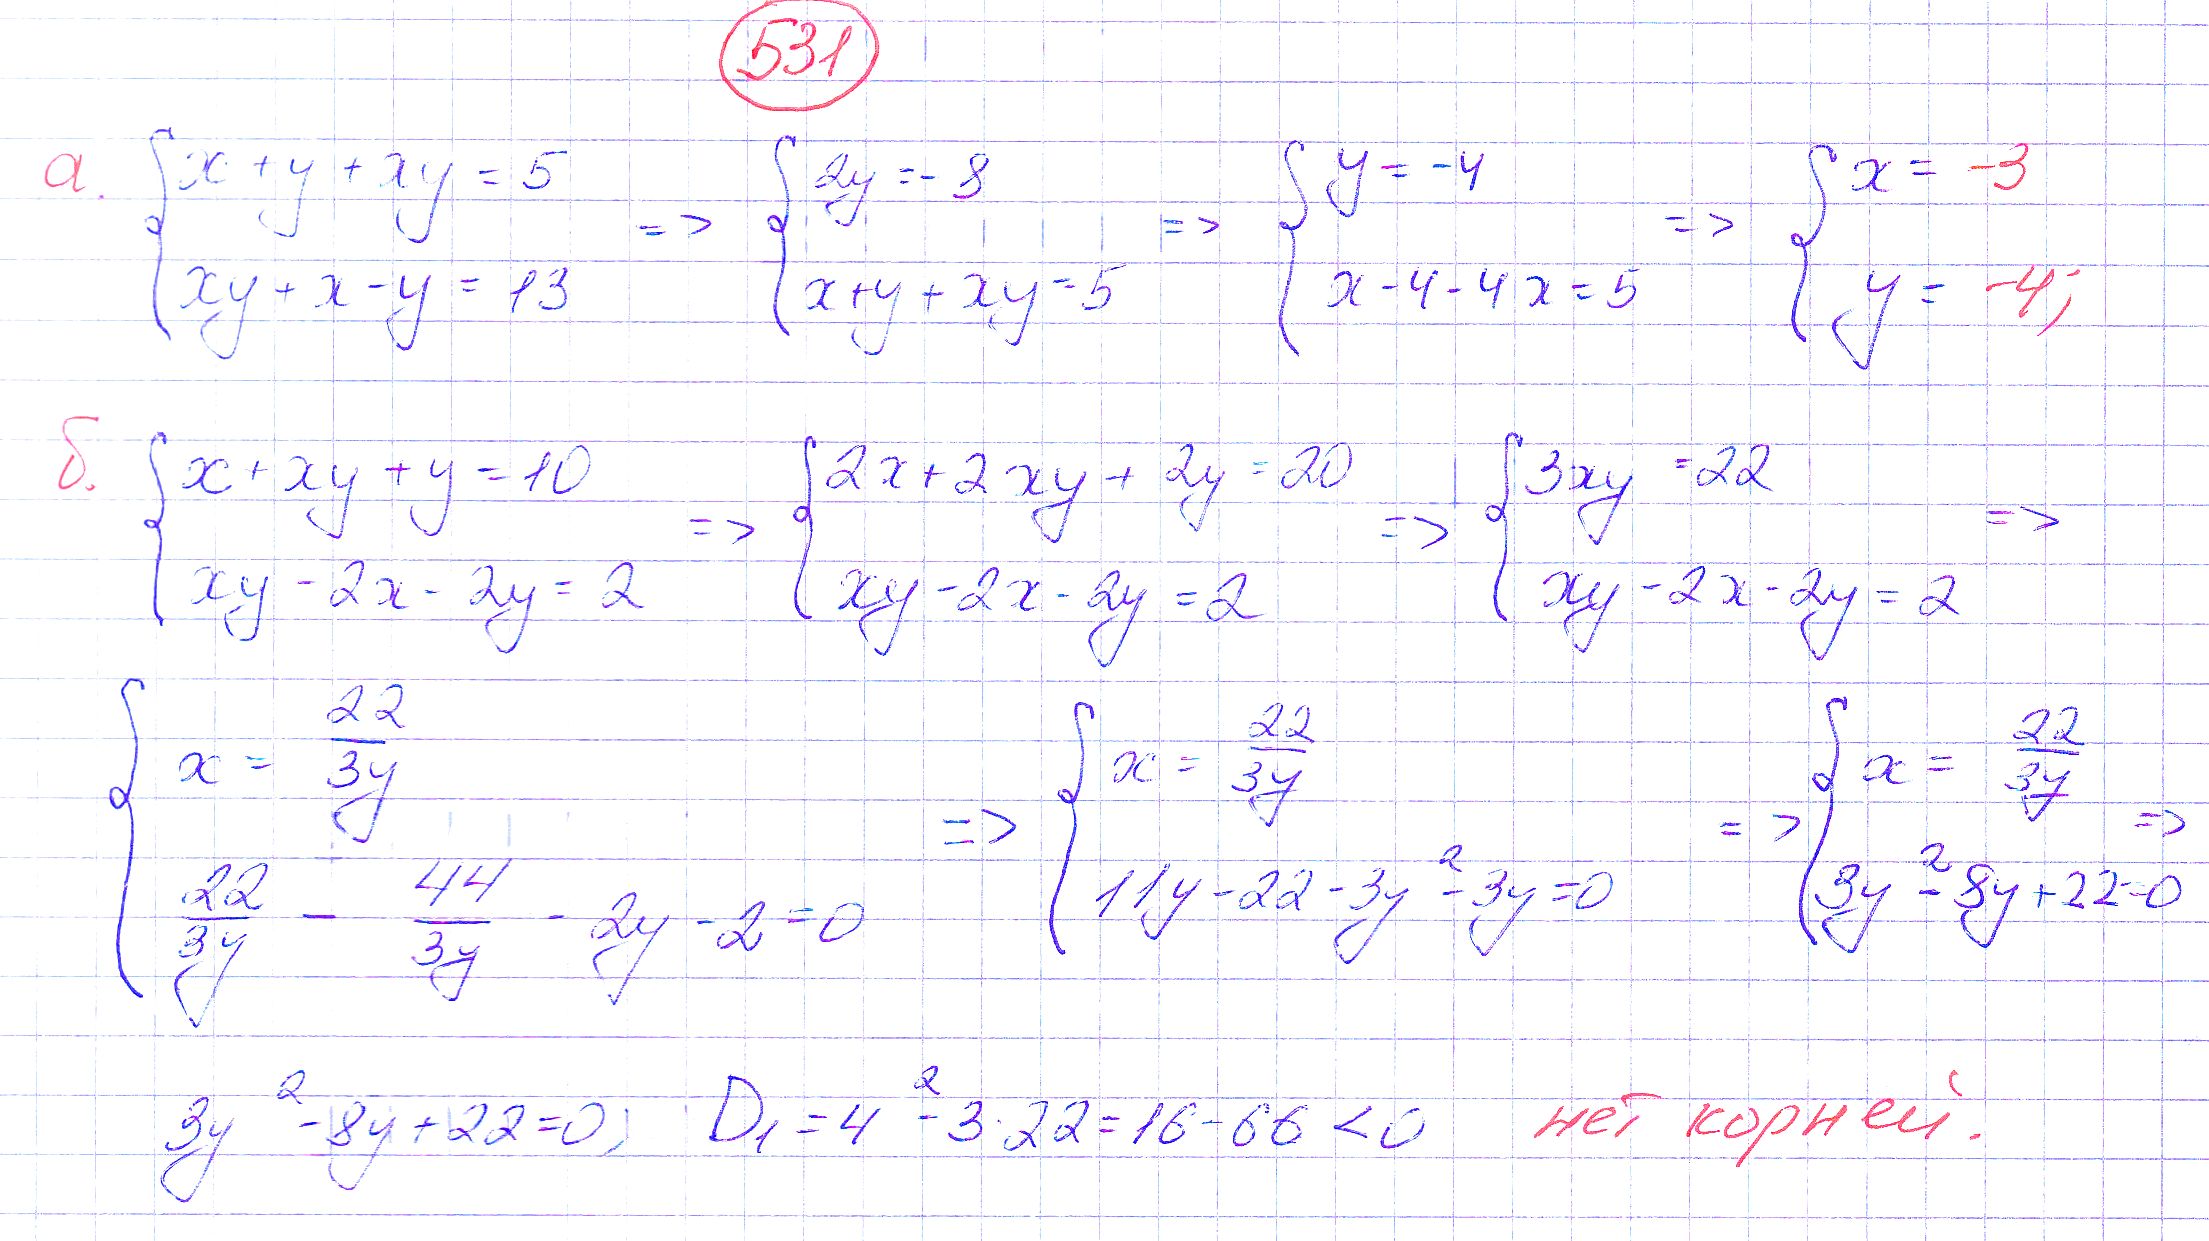 531
а. { x + y + xy = 5 ; xy + x - y = 13 => { 2y = -8 ; x + y + xy = 5 => { y = -4 ; x - 4 - 4x = 5 => { x = -3 ; y = -4;
б. { x + xy + y = 10 ; xy - 2x - 2y = 2 => { 2x + 2xy + 2y = 20 ; xy - 2x - 2y = 2 => { 3xy = 22 ; xy - 2x - 2y = 2 =>
{ x = 22/3y ; 22/3y - 44/3y - 2y - 2 = 0 => { x = 22/3y ; 11y - 22 - 3y² - 3y = 0 => { x = 22/3y ; 3y² - 8y + 22 = 0 =>
3y² - 8y + 22 = 0; D₁ = 4² - 3·22 = 16 - 66 < 0 нет корней.